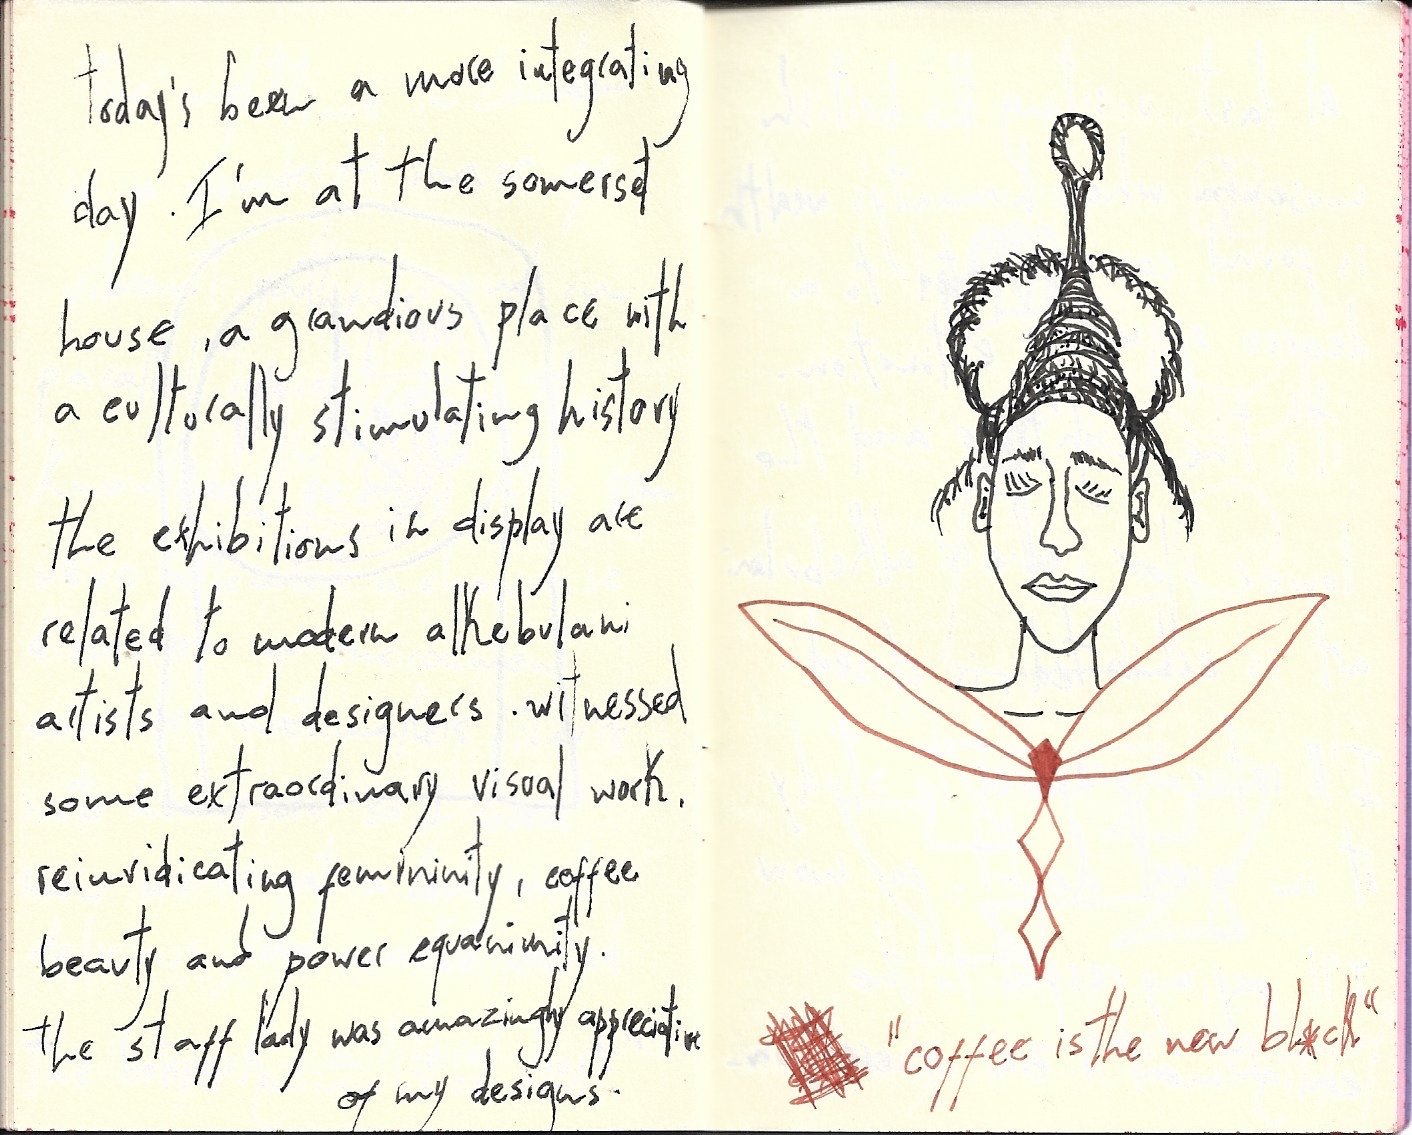 today's been a more integrating
day. I'm at the somerset
house, a grandious place with
a culturally stimulating history
the exhibitions in display are
related to modern alkebulani
artists and designers. witnessed
some extraordinary visual work.
reinvidicating femininity, coffee
beauty and power equanimity.
the staff lady was amazingly appreciative
of my designs.
"coffee is the new black"